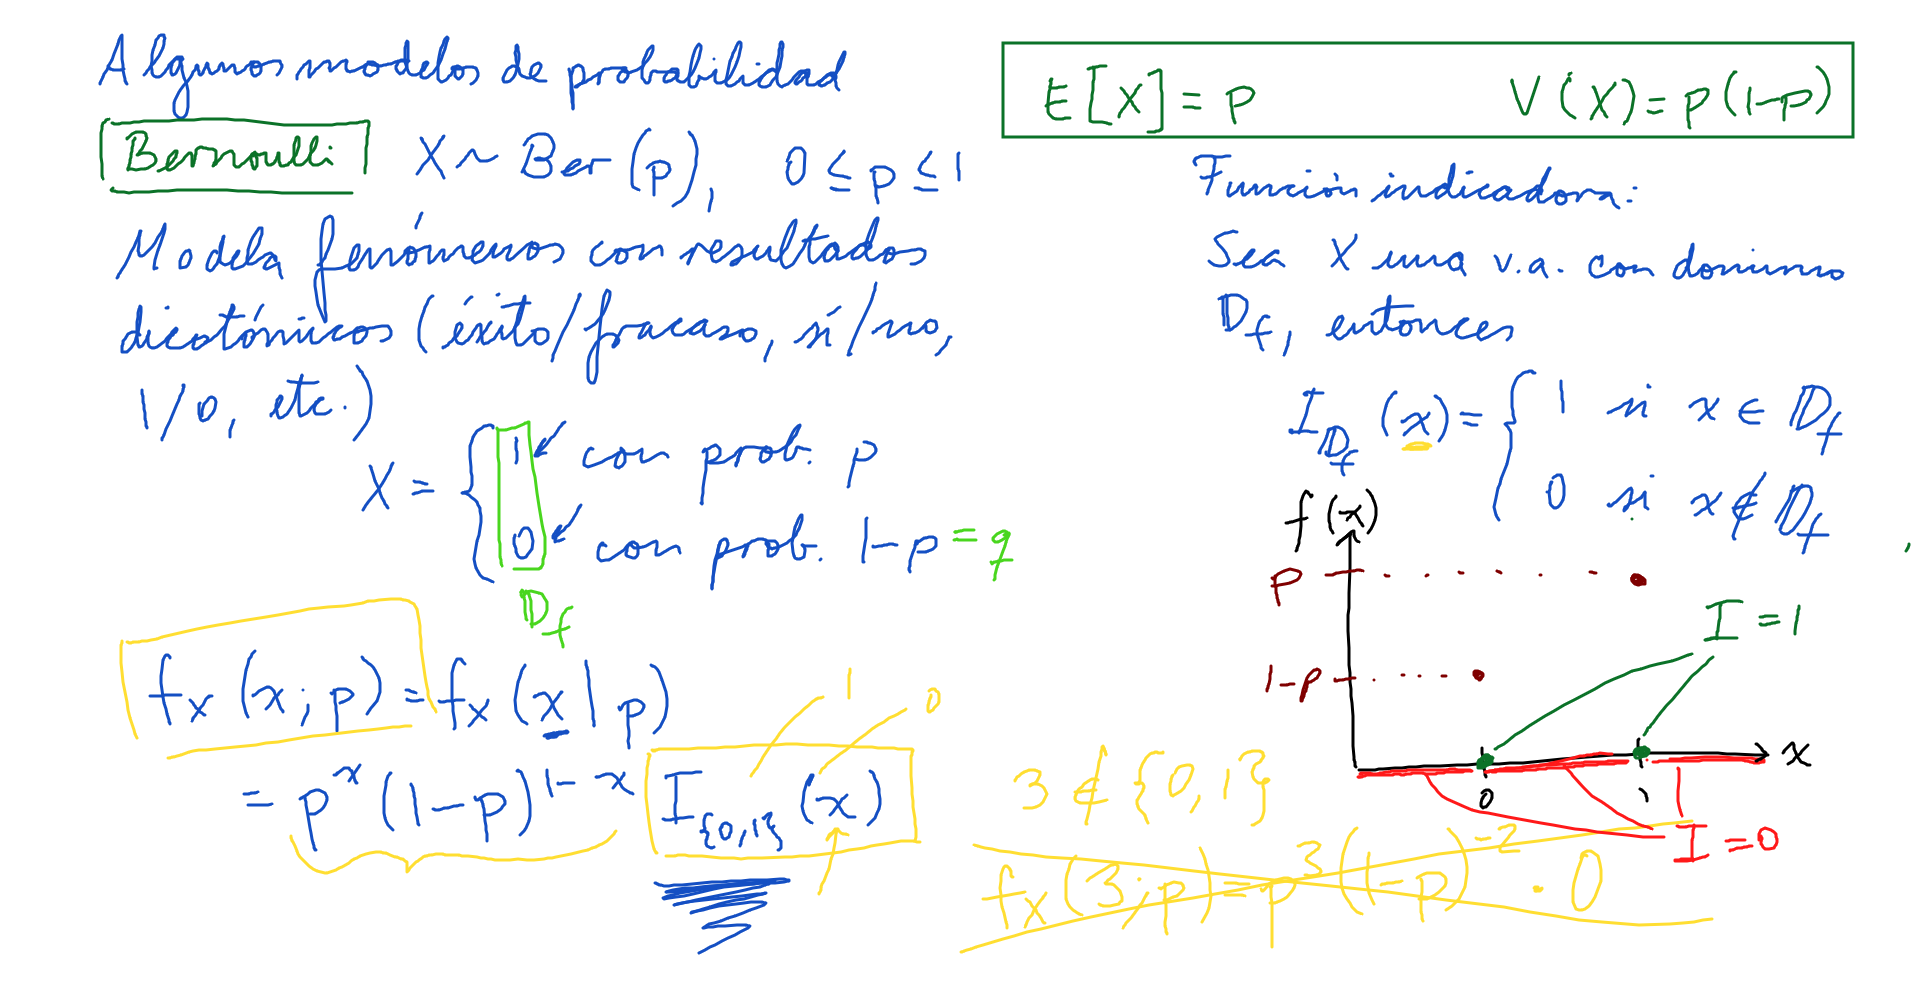 Algunos modelos de probabilidad
Bernoulli X ~ Ber(p), 0 ≤ p ≤ 1
Modela fenómenos con resultados
dicotómicos (éxito/fracaso, sí/no,
1/0, etc.)
X = { 1 con prob. p
0 con prob. 1-p = q
D_f
f_X(x;p) = f_X(x|p)
= p^x (1-p)^{1-x} I_{0,1}(x)
1
0
E[X] = p V(X) = p(1-p)
Función indicadora:
Sea X una v.a. con dominio
D_f, entonces
I_{D_f}(x) = { 1 si x ∈ D_f
0 si x ∉ D_f
f(x)
p
I = 1
1-p
x
0 1
I = 0
3 ∉ {0,1}
f_X(3;p) = p^3 (1-p)^{-2} · 0